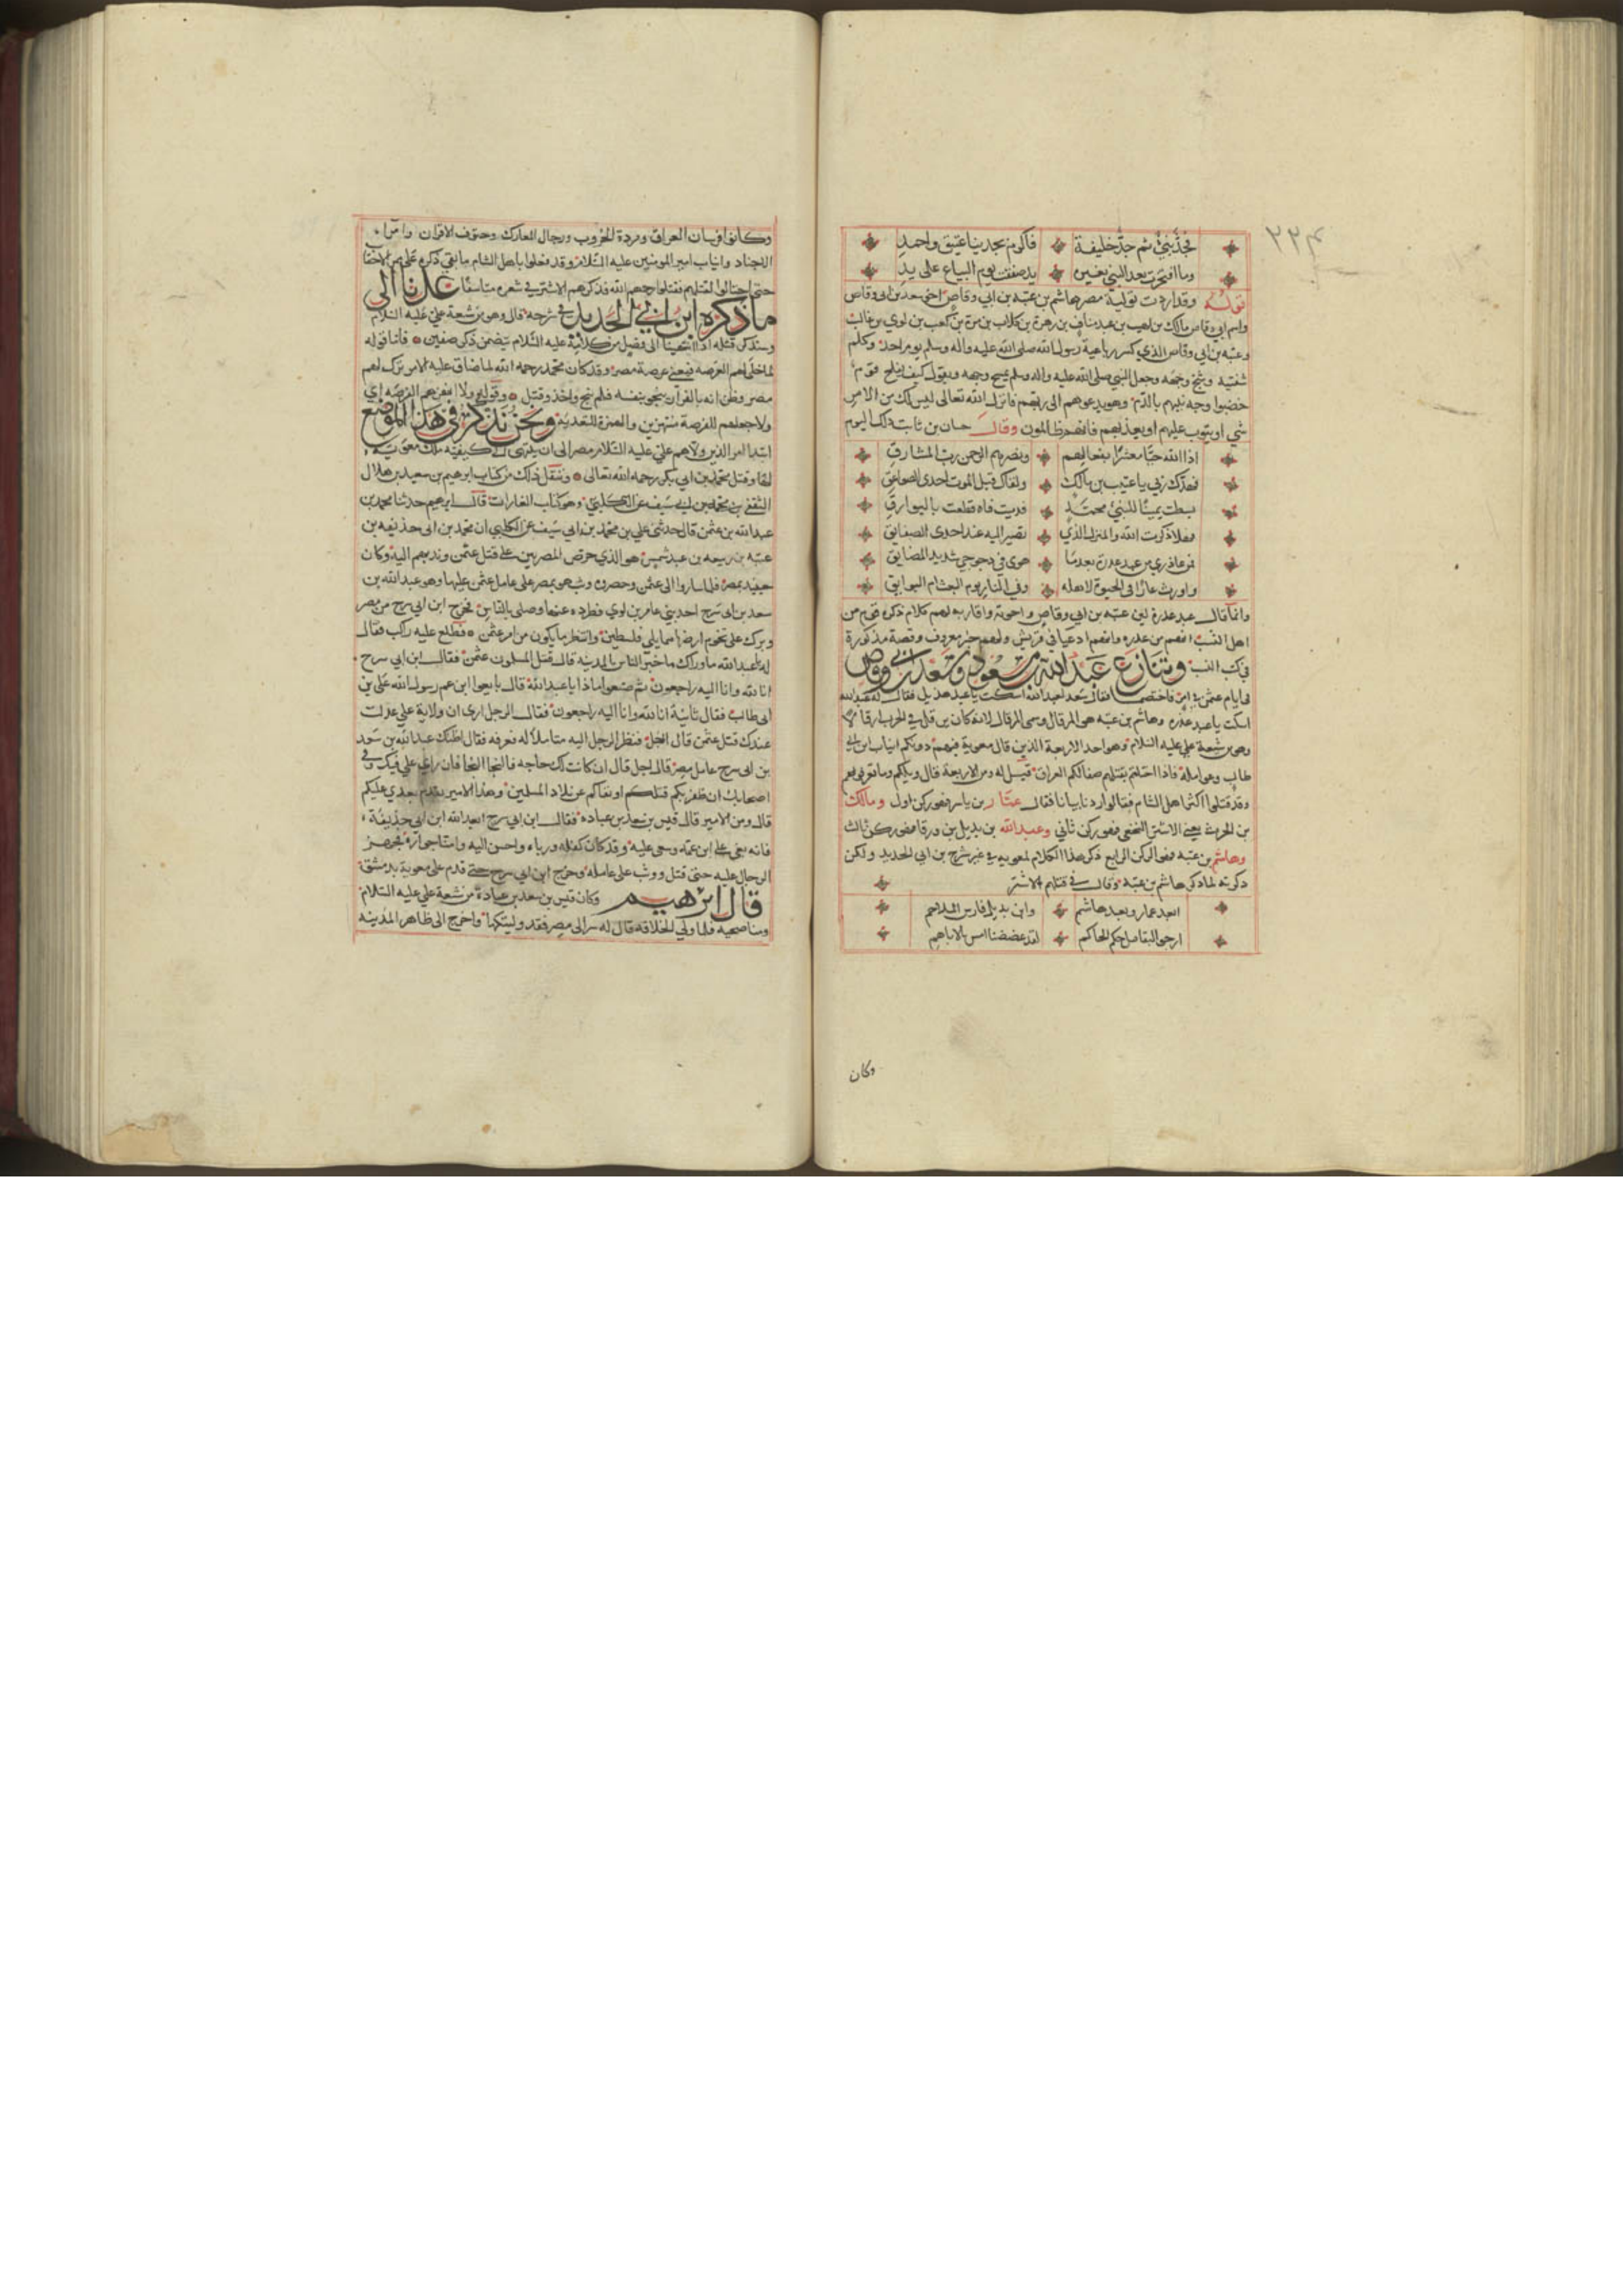 ٢٢٤
فجد نبي ثم جد خليفة فاكرم بجدينا عتيق واحمد
وما افتخرت بعد النبي بغيره يد صفقت يوم البياع على يد
قوله وقد اردت تولية مصر هاشم بن عتبه بن ابي وقاص اخي سعد بن ابي وقاص
واسم ابي وقاص مالك بن اهيب بن عبد مناف بن زهرة بن كلاب بن مرة بن كعب بن لوي بن غالب
وعتبه بن ابي وقاص الذي كسر رباعية رسول الله صلى الله عليه واله وسلم يوم احد وكلم
شفتيه وشج وجهه وجعل النبي صلى الله عليه واله وسلم يمسح وجهه ويقول كيف يفلح قوم
خضبوا وجه نبيهم بالدم وهو يدعوهم الى ربهم فانزل الله تعالى ليس لك من الامر
شي او يتوب عليهم او يعذبهم فانهم ظالمون وقال حسان بن ثابت ذلك اليوم
اذا الله حيا معشرا بفعالهم ونصرهم الرحمن رب المشارق
فهدك ربي يا عتيب بن مالك ولقاك قبل الموت احدى الصواعق
بسطت يمينا للنبي محمد فدميت فاه قطعت بالبوارق
فهلا ذكرت الله والمنزل الذي تصير اليه عند احدى الصفايق
فمن عاذري من عبد عذرة بعدما هوى في دجوجي شديد المضايق
واورث عارا في الحيوة لاهله وفي النار يوم البعث ام البوايق
وانما قال عبد عذرة لان عتبه بن ابي وقاص واخوته واقاربه لهم كلام ذكره قوم من
اهل النسب انهم من عذره وانهم ادعيا في قريش ولهم خبر معروف وقصة مذكورة
في كتب النسب وتنازع عبد الله بن مسعود وسعد بن ابي وقاص
في ايام عثمن في امر فاختصما فقال سعد لعبد الله اسكت يا عبد هذيل فقال له عبد الله
اسكت يا عبد عذره وهاشم بن عتبه هو المرقال وسمي المرقال لانه كان يرقل في الحرب ارقالا
وهو من شيعة علي عليه السلام وهو احد الاربعة الذين قال معوية فيهم دونكم انياب ابن ابي
طالب وعوامله فاذا احتلتم بقتلهم صفا لكم العراق قيل له ومن الاربعة قال ويلكم وما تعرفونهم
وقد قتلوا اكثر اهل الشام فقالوا زدنا بيانا فقال عمار بن ياسر فهو ركن اول ومالك
بن الحرث يعني الاشتر النخعي فهو ركن ثاني وعبد الله بن بديل بن ورقا فهو ركن ثالث
وهاشم بن عتبه فهو الركن الرابع ذكر هذا الكلام لمعويه في غير شرح بن ابي الحديد ولكن
ذكرته لما ذكر هاشم بن عتبة وقال في قتلهم الاشتر
ابعد عمار وبعد هاشم وابن بديل فارس الملاحم
ارجو البقا ضل حكم الحاكم لقد عضضنا امس بالاباهم
وكان
وكانوا فرسان العراق ومردة الحروب ورجال المعارك وحتوف الاقران وامرا
الاجناد وانياب امير المومنين عليه السلام وقد فعلوا باهل الشام ما بقي ذكره على مر الاحقاب
حتى احتالوا لقتلهم فقتلوا رحمهم الله فذكرهم الاشتر في شعره متاسفا عدنا الى
ما ذكره ابن ابي الحديد في شرحه قال وهو من شيعة علي عليه السلام
وسنذكر قتله اذا انتهينا الى فصل من كلامه عليه السلام يتضمن ذكر صفين فاما قوله
لما خلى لهم العرصه فيعني عرصة مصر وقد كان محمد رحمه الله لما ضاق عليه الامر ترك لهم
مصر وظن انه بالفرار ينجو بنفسه فلم ينج واخذ وقتل وقوله ولا انهزهم الفرصه اي
ولا جعلهم للفرصة منتهزين والهمزة للتعدية ونحن نذكر في هذا الموضع
ابتدا امر الذين ولاهم علي عليه السلام مصر الى ان ينتهي الى كيفيه ملك معوية
لها وقتل محمد بن ابي بكر رحمه الله تعالى وننقل ذلك من كتاب ابرهيم بن سعيد بن هلال
الثقفي وهو كتاب الغارات قال ابرهيم حدثنا محمد بن
عبد الله بن عثمن قال حدثني علي بن محمد بن ابي سيف عن الكلبي ان محمد بن ابي حذيفه بن
عتبه بن ربيعه بن عبد شمس هو الذي حرض المصريين على قتل عثمن وندبهم اليه وكان
حينيذ بمصر فلما ساروا الى عثمن وحصروه وثب هو بمصر على عامل عثمن عليها وهو عبد الله بن
سعد بن ابي سرح احد بني عامر بن لوي فطرده عنها وصلى بالناس فخرج ابن ابي سرح من مصر
ونزل على تخوم ارضها مما يلي فلسطين وانتظر ما يكون من امر عثمن فطلع عليه راكب فقال
له يا عبد الله ما وراك ما خبر الناس بالمدينه قال قتل المسلمون عثمن فقال ابن ابي سرح
انا لله وانا اليه راجعون ثم صنعوا ماذا يا عبد الله قال بايعوا ابن عم رسول الله علي بن
ابي طالب فقال ثانية انا لله وانا اليه راجعون فقال الرجل ارى ان ولاية علي عدلت
عندك قتل عثمن قال اجل فنظر الرجل اليه متاملا له فعرفه فقال اظنك عبد الله بن سعد
بن ابي سرح عامل مصر قال اجل قال ان كانت لك حاجه فالنجا النجا فان راي علي فيك وفي
اصحابك ان ظفر بكم قتلكم او نفاكم عن بلاد المسلمين وهذا الامير يقدم بعدي عليكم
قال ومن الامير قال قيس بن سعد بن عباده فقال ابن ابي سرح ابعد الله ابن ابي حذيفة
فانه بغى على ابن عمه وسعى عليه وقد كان كفله ورباه واحسن اليه واسا جواره فجهز
الرجال عليه حتى قتل ووثب على عامله وخرج ابن ابي سرح حتى قدم على معوية بدمشق
قال ابرهيم وكان قيس بن سعد بن عبادة من شيعة علي عليه السلام
ومناصحيه فلما ولي الخلافه قال له سر الى مصر فقد وليتكها واخرج الى ظاهر المدينه